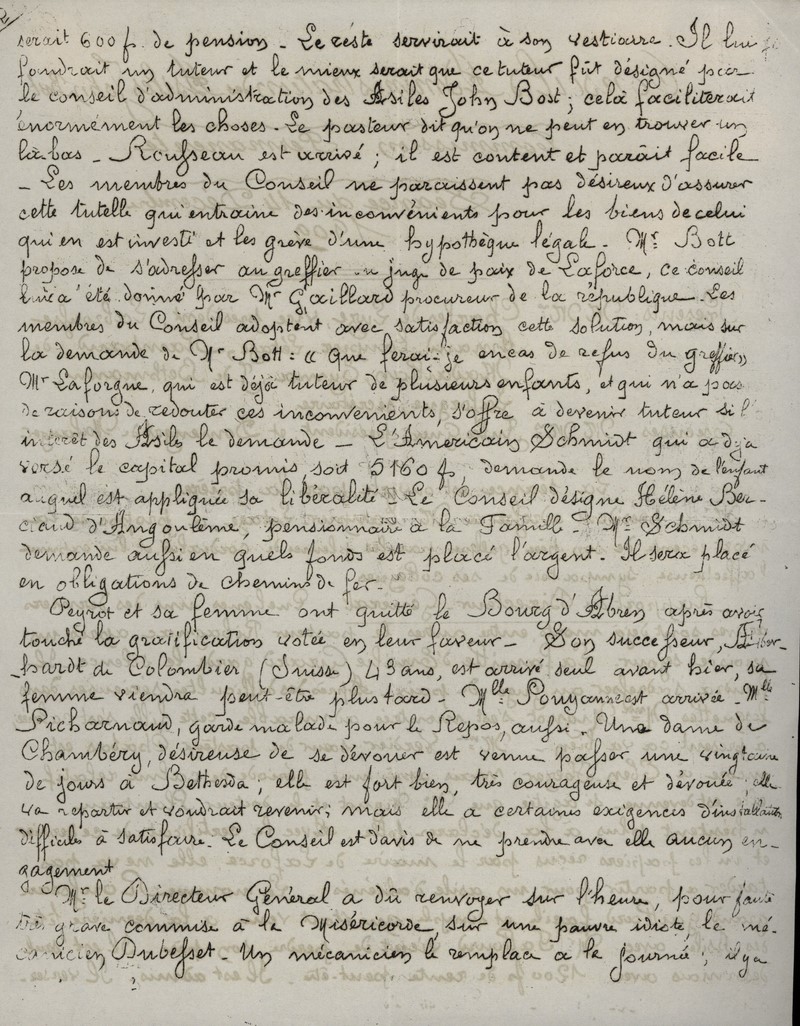 serait 600 f. de pension - Le reste servirait à son vestiaire. Il lui
foudrait un tuteur et le mieux serait que ce tuteur fût désigné par
le conseil d'administration des Asiles John Bost ; celà faciliterait
énormément les choses - Le pasteur dit qu'on ne peut en trouver un
là-bas - Rousseau est arrivé ; il est content et paraît facile
- Les membres du Conseil ne paraissent pas désireux d'assurer
cette tutelle qui entraine des inconvénients pour les biens de celui
qui en est investi et les grève d'une hypothèque légale - Mr Bott
propose de s'adresser au greffier du juge de paix de Laforce, ce conseil
lui a été donné par Mr Gaillard procureur de la république. Les
membres du Conseil adoptent avec satisfaction cette solution, mais sur
la demande de Mr Bott : « Que ferai-je en cas de refus du greffier,
Mr Laforgue, qui est déjà tuteur de plusieurs enfants, et qui n'a pas
de raisons de redouter ces inconvénients, s'offre à devenir tuteur si l'
intérêt des Asiles le demande - L'Américain Schmidt qui a déja
versé le capital promis, soit 5160 f, demande le nom de l'enfant
auquel est appliquée sa libéralité - Le Conseil désigne Hélène Ber-
ciaud d'Angoulême, pensionnaire à la Famille - Mr Schmidt
demande aussi en quels fonds est placé l'argent. Il sera placé
en obligations de chemins de fer -
Peyrot et sa femme ont quitté le Bourg d'Abren après avoir
touché la gratification votée en leur faveur - Son successeur,
-hardt de Colombier (Suisse) 43 ans, est arrivé seul avant hier, sa
femme viendra peut-être plus tard - Mlle Pouyanne est arrivée - Mlle
Picharnaud, garde malade pour le Repos, aussi. Une dame de
Chambéry, désireuse de se dévouer est venue passer une vingtaine
de jours à Bethesda ; elle est fort bien, très courageuse et dévouée ; elle
va repartir et voudrait revenir ; mais elle a certaines exigences d'installation
difficiles à satisfaire. Le Conseil est d'avis de ne prendre avec elle aucun en-
gagement
Mr le Directeur Général a dû renvoyer sur l'heure, pour faute
très grave commise à la Miséricorde, sur une pauvre idiote, le mé-
canicien Dubesset - Un mécanicien le remplace à la journée ; il y a